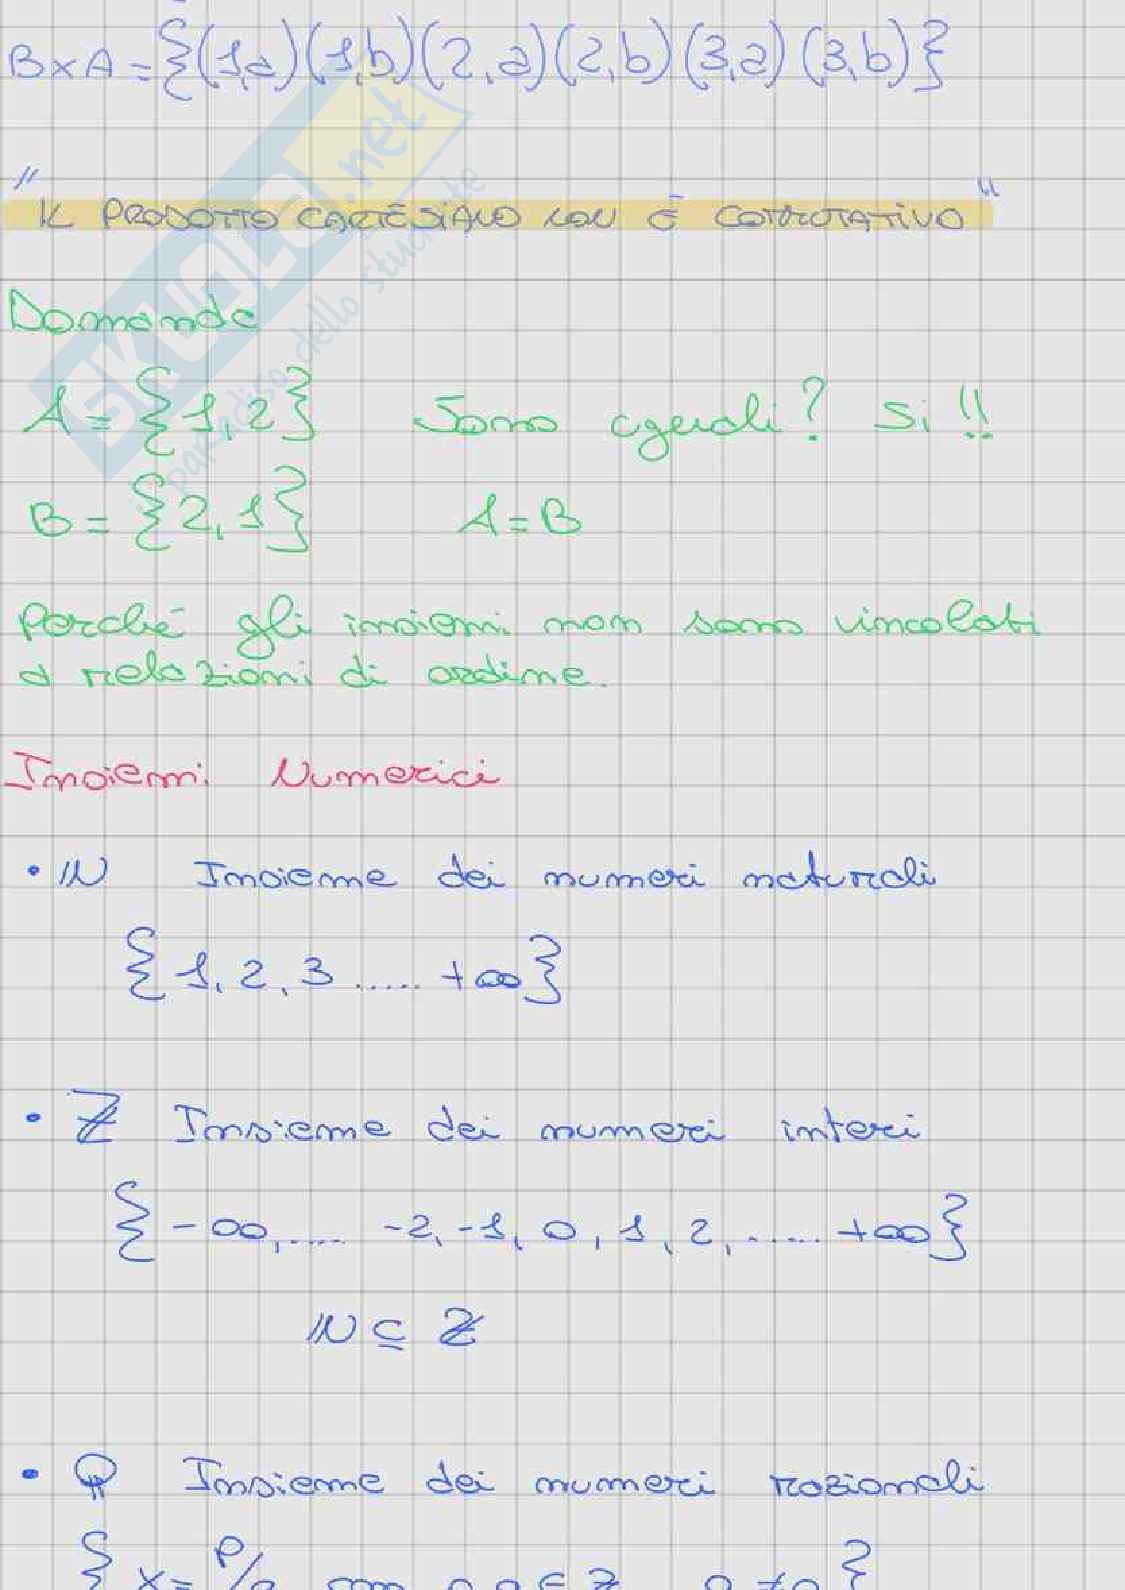 B×A = {(1,a)(1,b)(2,a)(2,b)(3,a)(3,b)}
"IL PRODOTTO CARTESIANO NON È COMMUTATIVO"
Domanda
A = {1,2} Sono uguali? Si!!
B = {2,1} A=B
Perché gli insiemi non sono vincolati
a relazioni di ordine.
Insiemi Numerici
• ℕ Insieme dei numeri naturali
{1, 2, 3 ..... +∞}
• ℤ Insieme dei numeri interi
{-∞, .... -2, -1, 0, 1, 2, ..... +∞}
ℕ ⊆ ℤ
• ℚ Insieme dei numeri razionali
{x = P/q con p,q ∈ ℤ q ≠ 0}
SKUOLA.net
paradiso dello studente